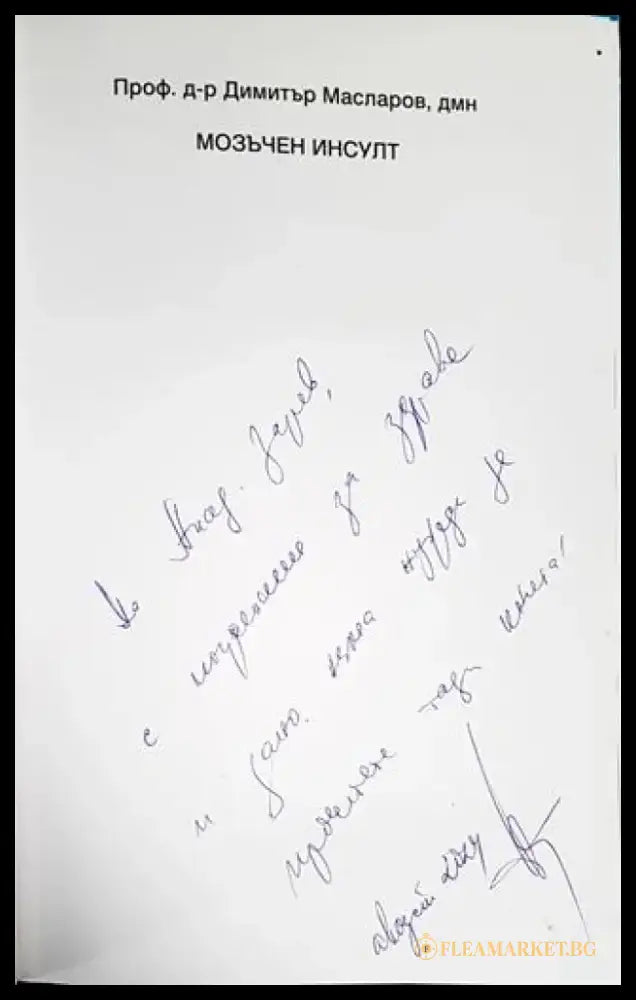 Проф. д-р Димитър Масларов, дмн
МОЗЪЧЕН ИНСУЛТ
На Акад. Зарев,
с пожелание за здраве
и дано няма нужда да
прочетете тази книга!
август 2024
FLEAMARKET.BG